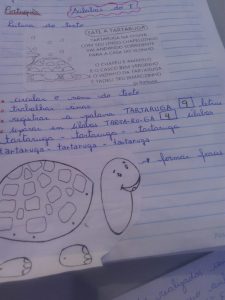 Português Sílabas do T
Leitura do texto
TATI A TARTARUGA
TARTARUGA NA CHUVA
COM SEU LINDO CHAPEUZINHO
VAI ANDANDO CONTENTE
PARA A CASA DO VIZINHO
O CHAPÉU É AMARELO
E O CASCO BEM VERDINHO
E O VIZINHO DA TARTARUGA
É
• circular o nome do texto
• trabalhar rimas
• registrar a palavra TARTARUGA 9 letras
• separar em sílabas TARTA-RU-GA 4 sílabas
tartaruga - tartaruga - tartaruga
tartaruga - tartaruga - tartaruga
→ formar frases